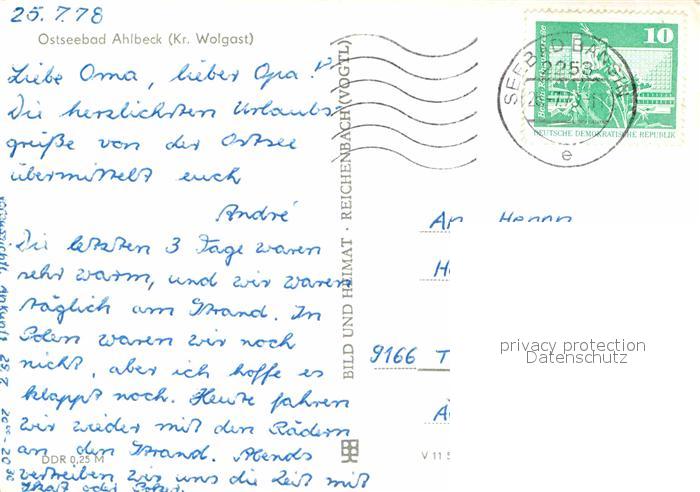 25.7.78
Ostseebad Ahlbeck (Kr. Wolgast)
Liebe Oma, lieber Opa!
Die herzlichsten Urlaubs-
grüße von der Ostsee
übermittelt euch
André
Die letzten 3 Tage waren
sehr warm, und wir waren
täglich am Strand. In
Polen waren wir noch
nicht, aber ich hoffe es
klappt noch. Heute fahren
wir wieder mit den Rädern
an den Strand. Abends
vertreiben wir uns die Zeit mit
Skat oder
DDR 0,25 M
BILD UND HEIMAT · REICHENBACH (VOGTL)
V 11 5
10
DEUTSCHE DEMOKRATISCHE REPUBLIK
SEEBAD BANSIN
2253
e
9166 T
privacy protection
Datenschutz